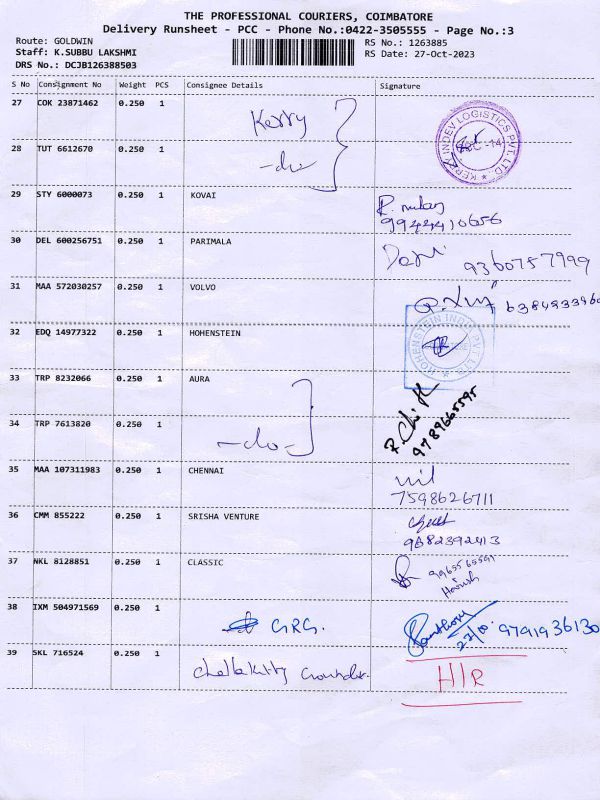 THE PROFESSIONAL COURIERS, COIMBATORE
Delivery Runsheet - PCC - Phone No.:0422-3505555 - Page No.:3
Route: GOLDWIN
RS No.: 1263885
Staff: K.SUBBU LAKSHMI
RS Date: 27-Oct-2023
DRS No.: DCJB126388503
S No Consignment No Weight PCS Consignee Details Signature
27 COK 23871462 0.250 1 Kerry
KERRY INDEV LOGISTICS PVT. LTD.
28 TUT 6612670 0.250 1 -do-
29 STY 6000073 0.250 1 KOVAI
9944410656
30 DEL 600256751 0.250 1 PARIMALA
9360757999
31 MAA 572030257 0.250 1 VOLVO
32 EDQ 14977322 0.250 1 HOHENSTEIN
HOHENSTEIN INDIA PVT LTD
33 TRP 8232066 0.250 1 AURA
34 TRP 7613820 0.250 1 -do-
9789665595
35 MAA 107311983 0.250 1 CHENNAI
nil
7598626711
36 CMM 855222 0.250 1 SRISHA VENTURE
9682392413
37 NKL 8128851 0.250 1 CLASSIC
9965565591
Harish
38 IXM 504971569 0.250 1 GRG.
9791936130
39 SKL 716524 0.250 1 Chellakutty
H/R